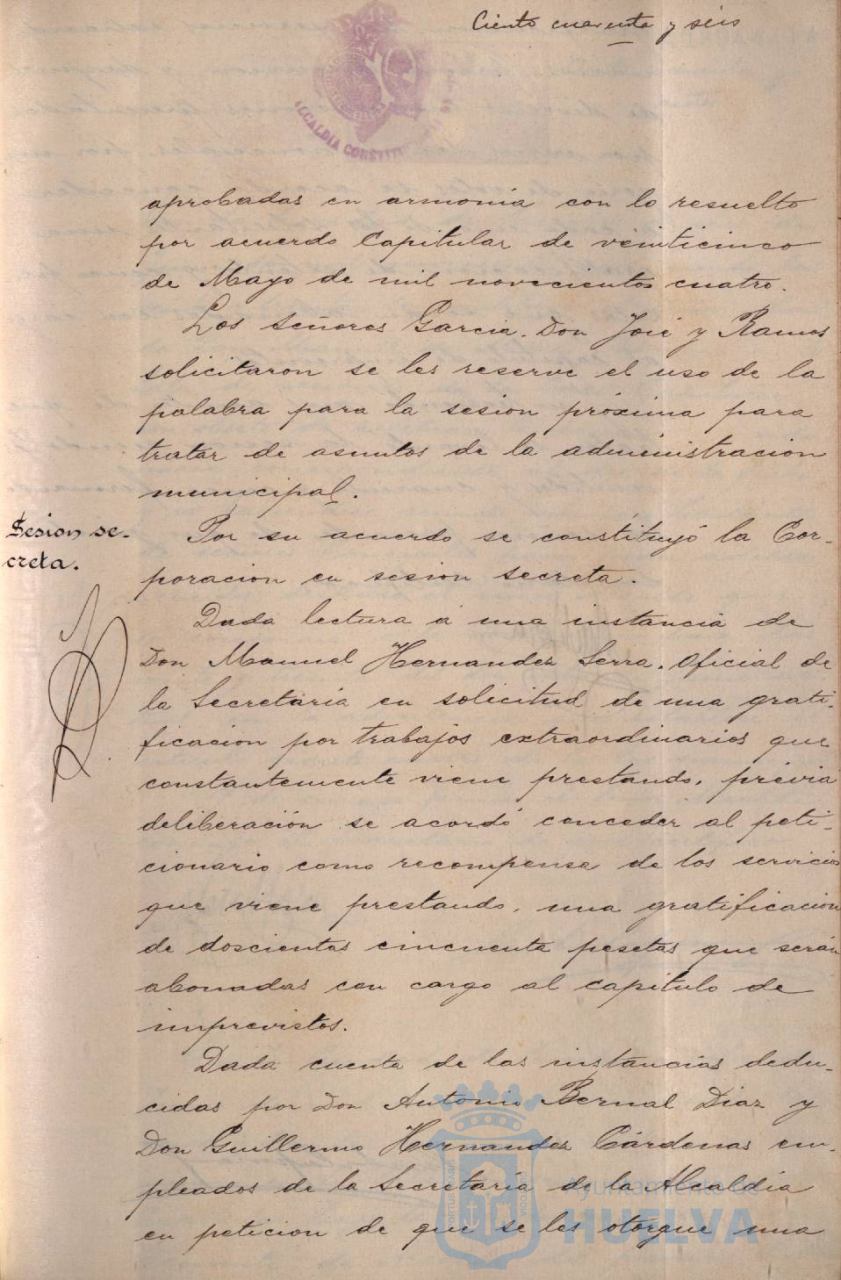 Ciento cuarenta y séis
ALCALDIA CONSTITU
aprobadas en armonia con lo resuelto
por acuerdo Capitular de veinticinco
de Mayo de mil novecientos cuatro.
Los Señores Garcia, Don José y Ramos
solicitaron se les reserve el uso de la
palabra para la sesion próxima para
tratar de asuntos de la administracion
municipal.
Sesion se-
creta.
Por su acuerdo se constituyó la Cor-
poracion en sesion secreta.
Dada lectura á una instancia de
Don Manuel Hernandez Serra, Oficial de
la Secretaría en solicitud de una grati-
ficacion por trabajos extraordinarios que
constantemente viene prestando, prévia
deliberación se acordó conceder al peti-
cionario como recompensa de los servicios
que viene prestando, una gratificacion
de doscientas cincuenta pesetas que serán
abonadas con cargo al capitulo de
imprevistos.
Dada cuenta de las instancias dedu-
cidas por Don Antonio Bernal Diaz y
Don Guillermo Hernandez Cárdenas em-
pleados de la Secretaría de la Alcaldia
en peticion de que se les otorgue una
Ayuntamiento de
HUELVA